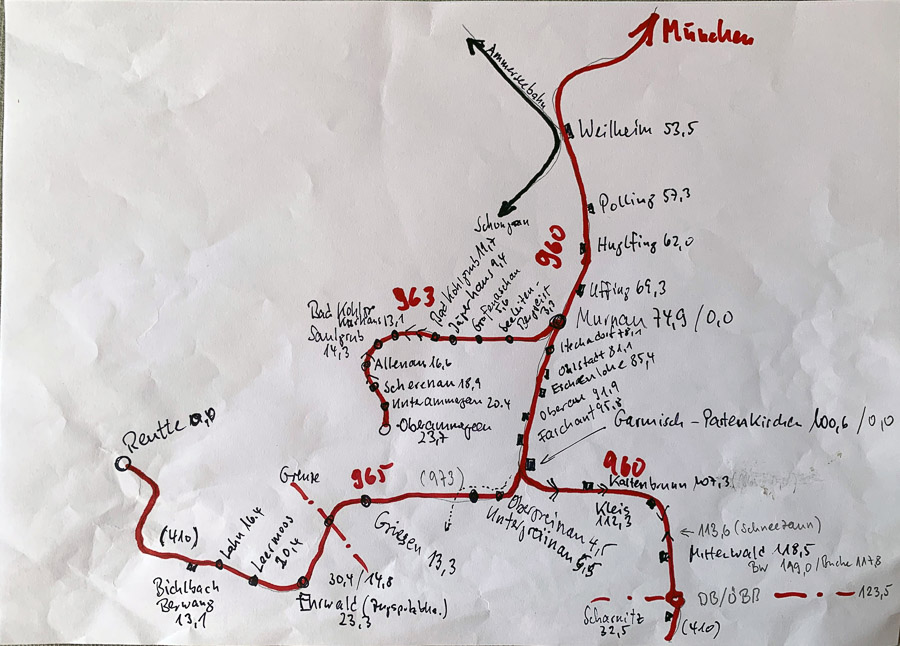 München
Ammerseebahn
Weilheim 53,5
Polling 57,3
Schongau
Huglfing 62,0
960
Uffing 69,3
Murnau 74,9 / 0,0
963
Bad Kohlgrub 11,7
Jägerhaus 9,4
Grafenaschau
5,6
Seeleiten-
Berggeist
3,3
Bad Kohlgr
Kurhaus 13,1
Saulgrub
14,3
Altenau 16,6
Scherenau 18,9
Unterammergau 20.4
Oberammergau
23,7
Hechendorf 78,1
Ohlstadt 81,1
Eschenlohe 85,4
Oberau 91,9
Farchant 95,8
Garmisch-Partenkirchen 100,6 / 0,0
960
Kaltenbrunn 107,3
Kleis
112,3
113,6 (Schneezaun)
Mittenwald 118,5
DB/ÖBB
123,5
Scharnitz
32,5
(410)
Reutte 0,0
Grenze
965
(973)
Untergrainau 5,5
Griesen 13,3
(410)
Lähn 16.4
Leermoos
20,4
Bichlbach
Berwang
13,1
30,4 / 14,8
Ehrwald (Zugspitzbhn.)
23,3